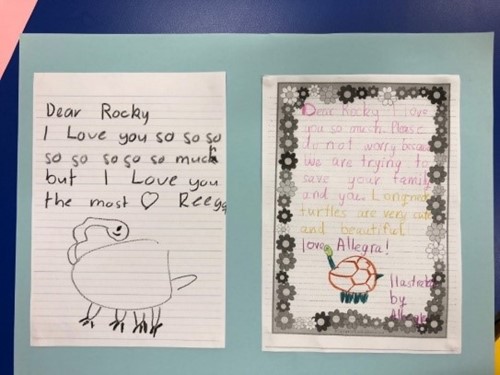 Dear Rocky
I Love you so so so
so so so so so much
but I Love you
the most ♡ Reega
Dear Rocky I love
you so much. Please
do not worry because
we are trying to
save your family
and you. Longneck
turtles are very cute
and beautiful
love Allegra!
Ilustrated
by